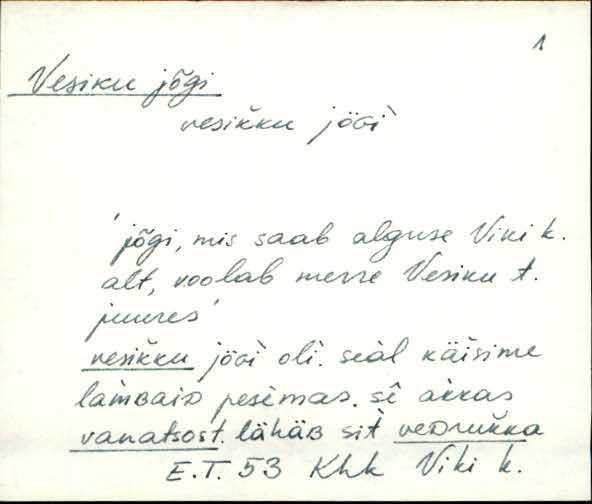 1
Vesiku jõgi
vesikku jöGì
'jõgi, mis saab alguse Viki k.
alt, voolab merre Vesiku t.
juures'
vesikku jöGì olì. seàl käisime
lamBaiD pesemas. sê akkas
vanatsost. lähäB sìt
E.T. 53 Khk Viki k.